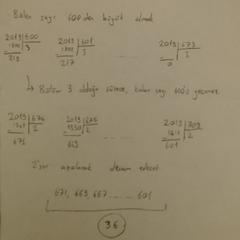 Bölen sayı 600'den büyük olmalı
2019 | 600
1800 | 3
219
2019 | 601
1803 | 3
217
2019 | 673
| 3
0
↳ Bölüm 3 olduğu sürece, kalan sayı 600'ü geçemez
2019 | 674
| 2
671
2019 | 675
1350 | 2
669
2019 | 709
| 2
601
azalarak devam edecek
671, 669, 667 ...... 601
36